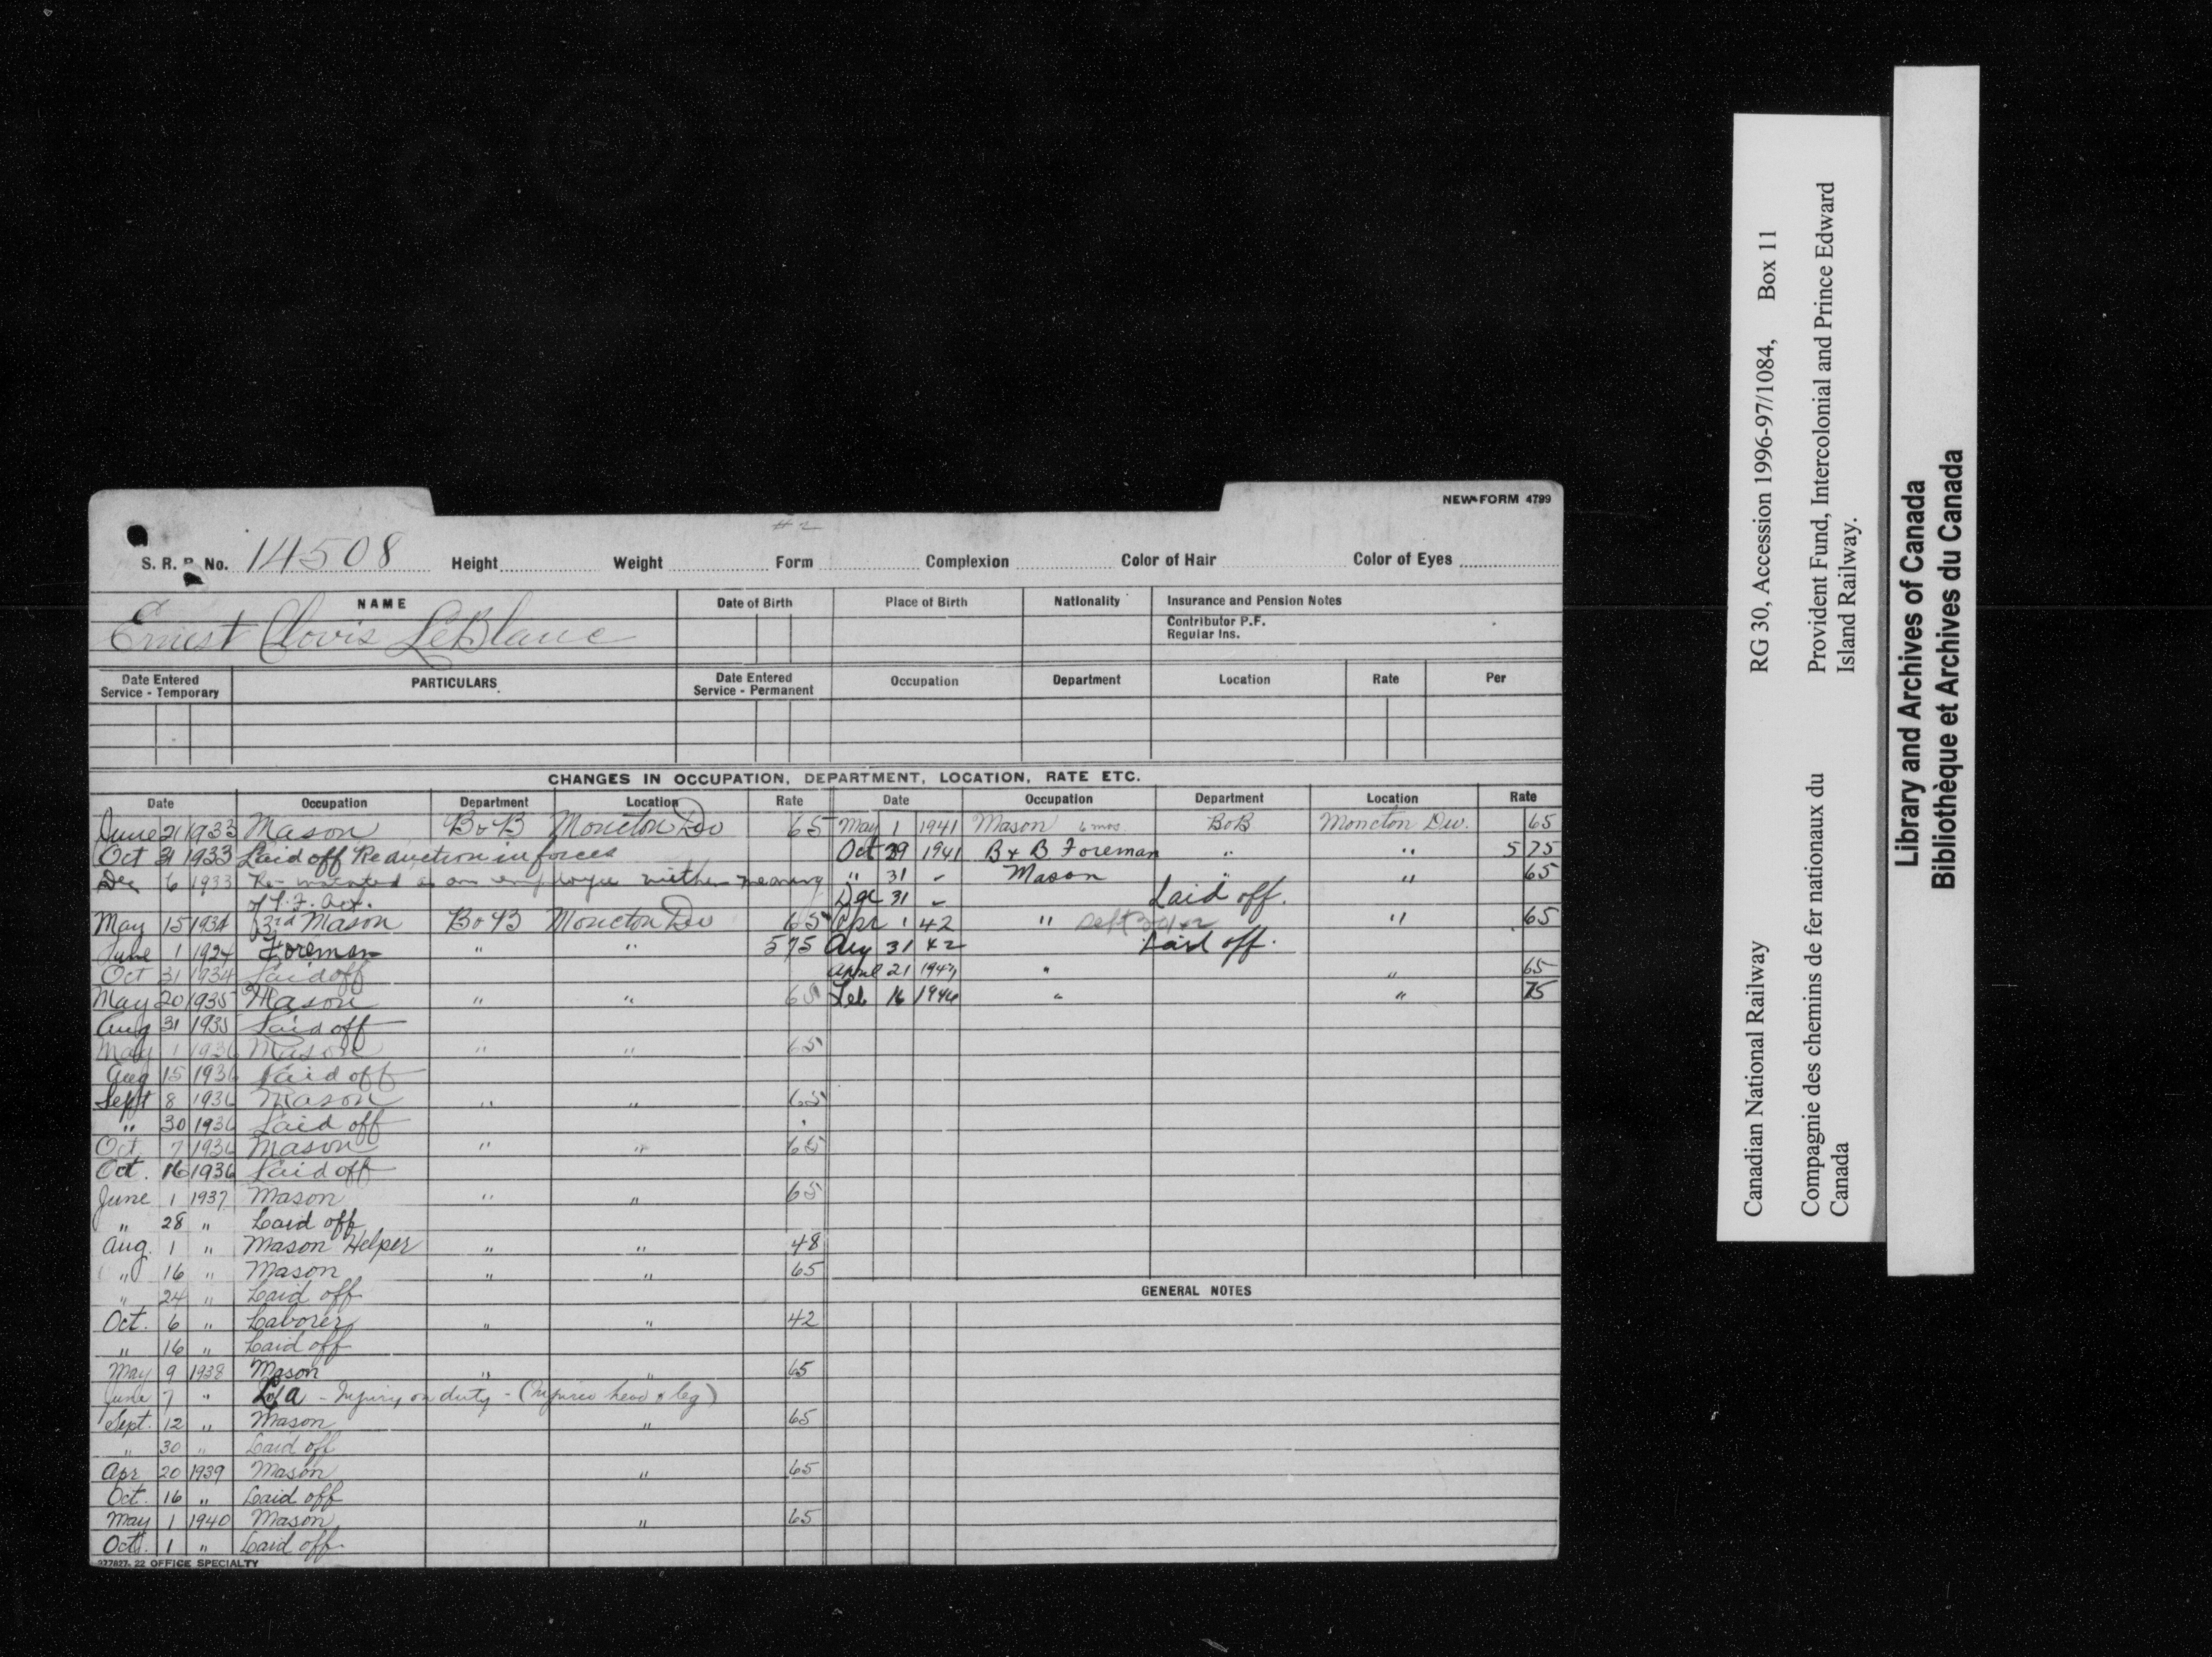 NEW FORM 4799
# 2
S. R. P. No. 14508 Height Weight Form Complexion Color of Hair Color of Eyes
NAME Date of Birth Place of Birth Nationality Insurance and Pension Notes
Contributor P.F.
Regular Ins.
Ernest Clovis LeBlanc
Date Entered Service - Temporary PARTICULARS Date Entered Service - Permanent Occupation Department Location Rate Per
CHANGES IN OCCUPATION, DEPARTMENT, LOCATION, RATE ETC.
Date Occupation Department Location Rate Date Occupation Department Location Rate
June 21 1933 Mason B & B Moncton Div 65
Oct 31 1933 Laid off Reduction in forces
Dec 6 1933 Re-instated as an employee within meaning
of P.F. Act.
May 15 1934 Mason B & B Moncton Div 65
June 1 1934 Foreman " " 5 75
Oct 31 1934 Laid off
May 20 1935 Mason " " 65
Aug 31 1935 Laid off
May 1 1936 Mason " " 65
Aug 15 1936 Laid off
Sept 8 1936 Mason " " 65
" 30 1936 Laid off
Oct 7 1936 Mason " " 65
Oct. 16 1936 Laid off
June 1 1937 Mason " " 65
" 28 " Laid off
Aug. 1 " Mason Helper " " 48
" 16 " Mason " " 65
" 24 " Laid off
Oct. 6 " Laborer " " 42
" 16 " Laid off
May 9 1938 Mason " " 65
June 7 " L/a - Injury on duty - (Injured head & leg)
Sept. 12 " Mason " 65
" 30 " Laid off
Apr 20 1939 Mason " 65
Oct. 16 " Laid off
May 1 1940 Mason " 65
Oct. 1 " Laid off
May 1 1941 Mason 6 mos. B&B Moncton Div. 65
Oct 29 1941 B & B Foreman " " 5 75
" 31 - Mason " " 65
Dec 31 - Laid off.
Apr 1 42 " " 65
Aug 31 42 Laid off.
April 21 1943 " " 65
Feb 16 1944 " " 75
GENERAL NOTES
277827. 22 OFFICE SPECIALTY
Canadian National Railway RG 30, Accession 1996-97/1084, Box 11
Compagnie des chemins de fer nationaux du Canada Provident Fund, Intercolonial and Prince Edward Island Railway.
Library and Archives of Canada
Bibliothèque et Archives du Canada